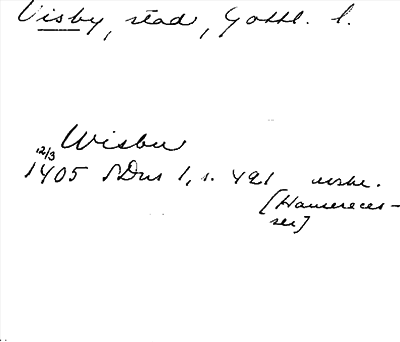 Visby, stad, Gottl. l.
Wisbu
12/3
1405 SDns 1, s. 421 utskr.
[Hansereces-
ser]